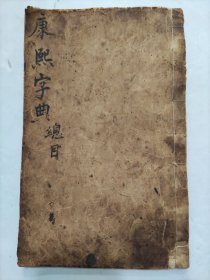 康熙字典
總目